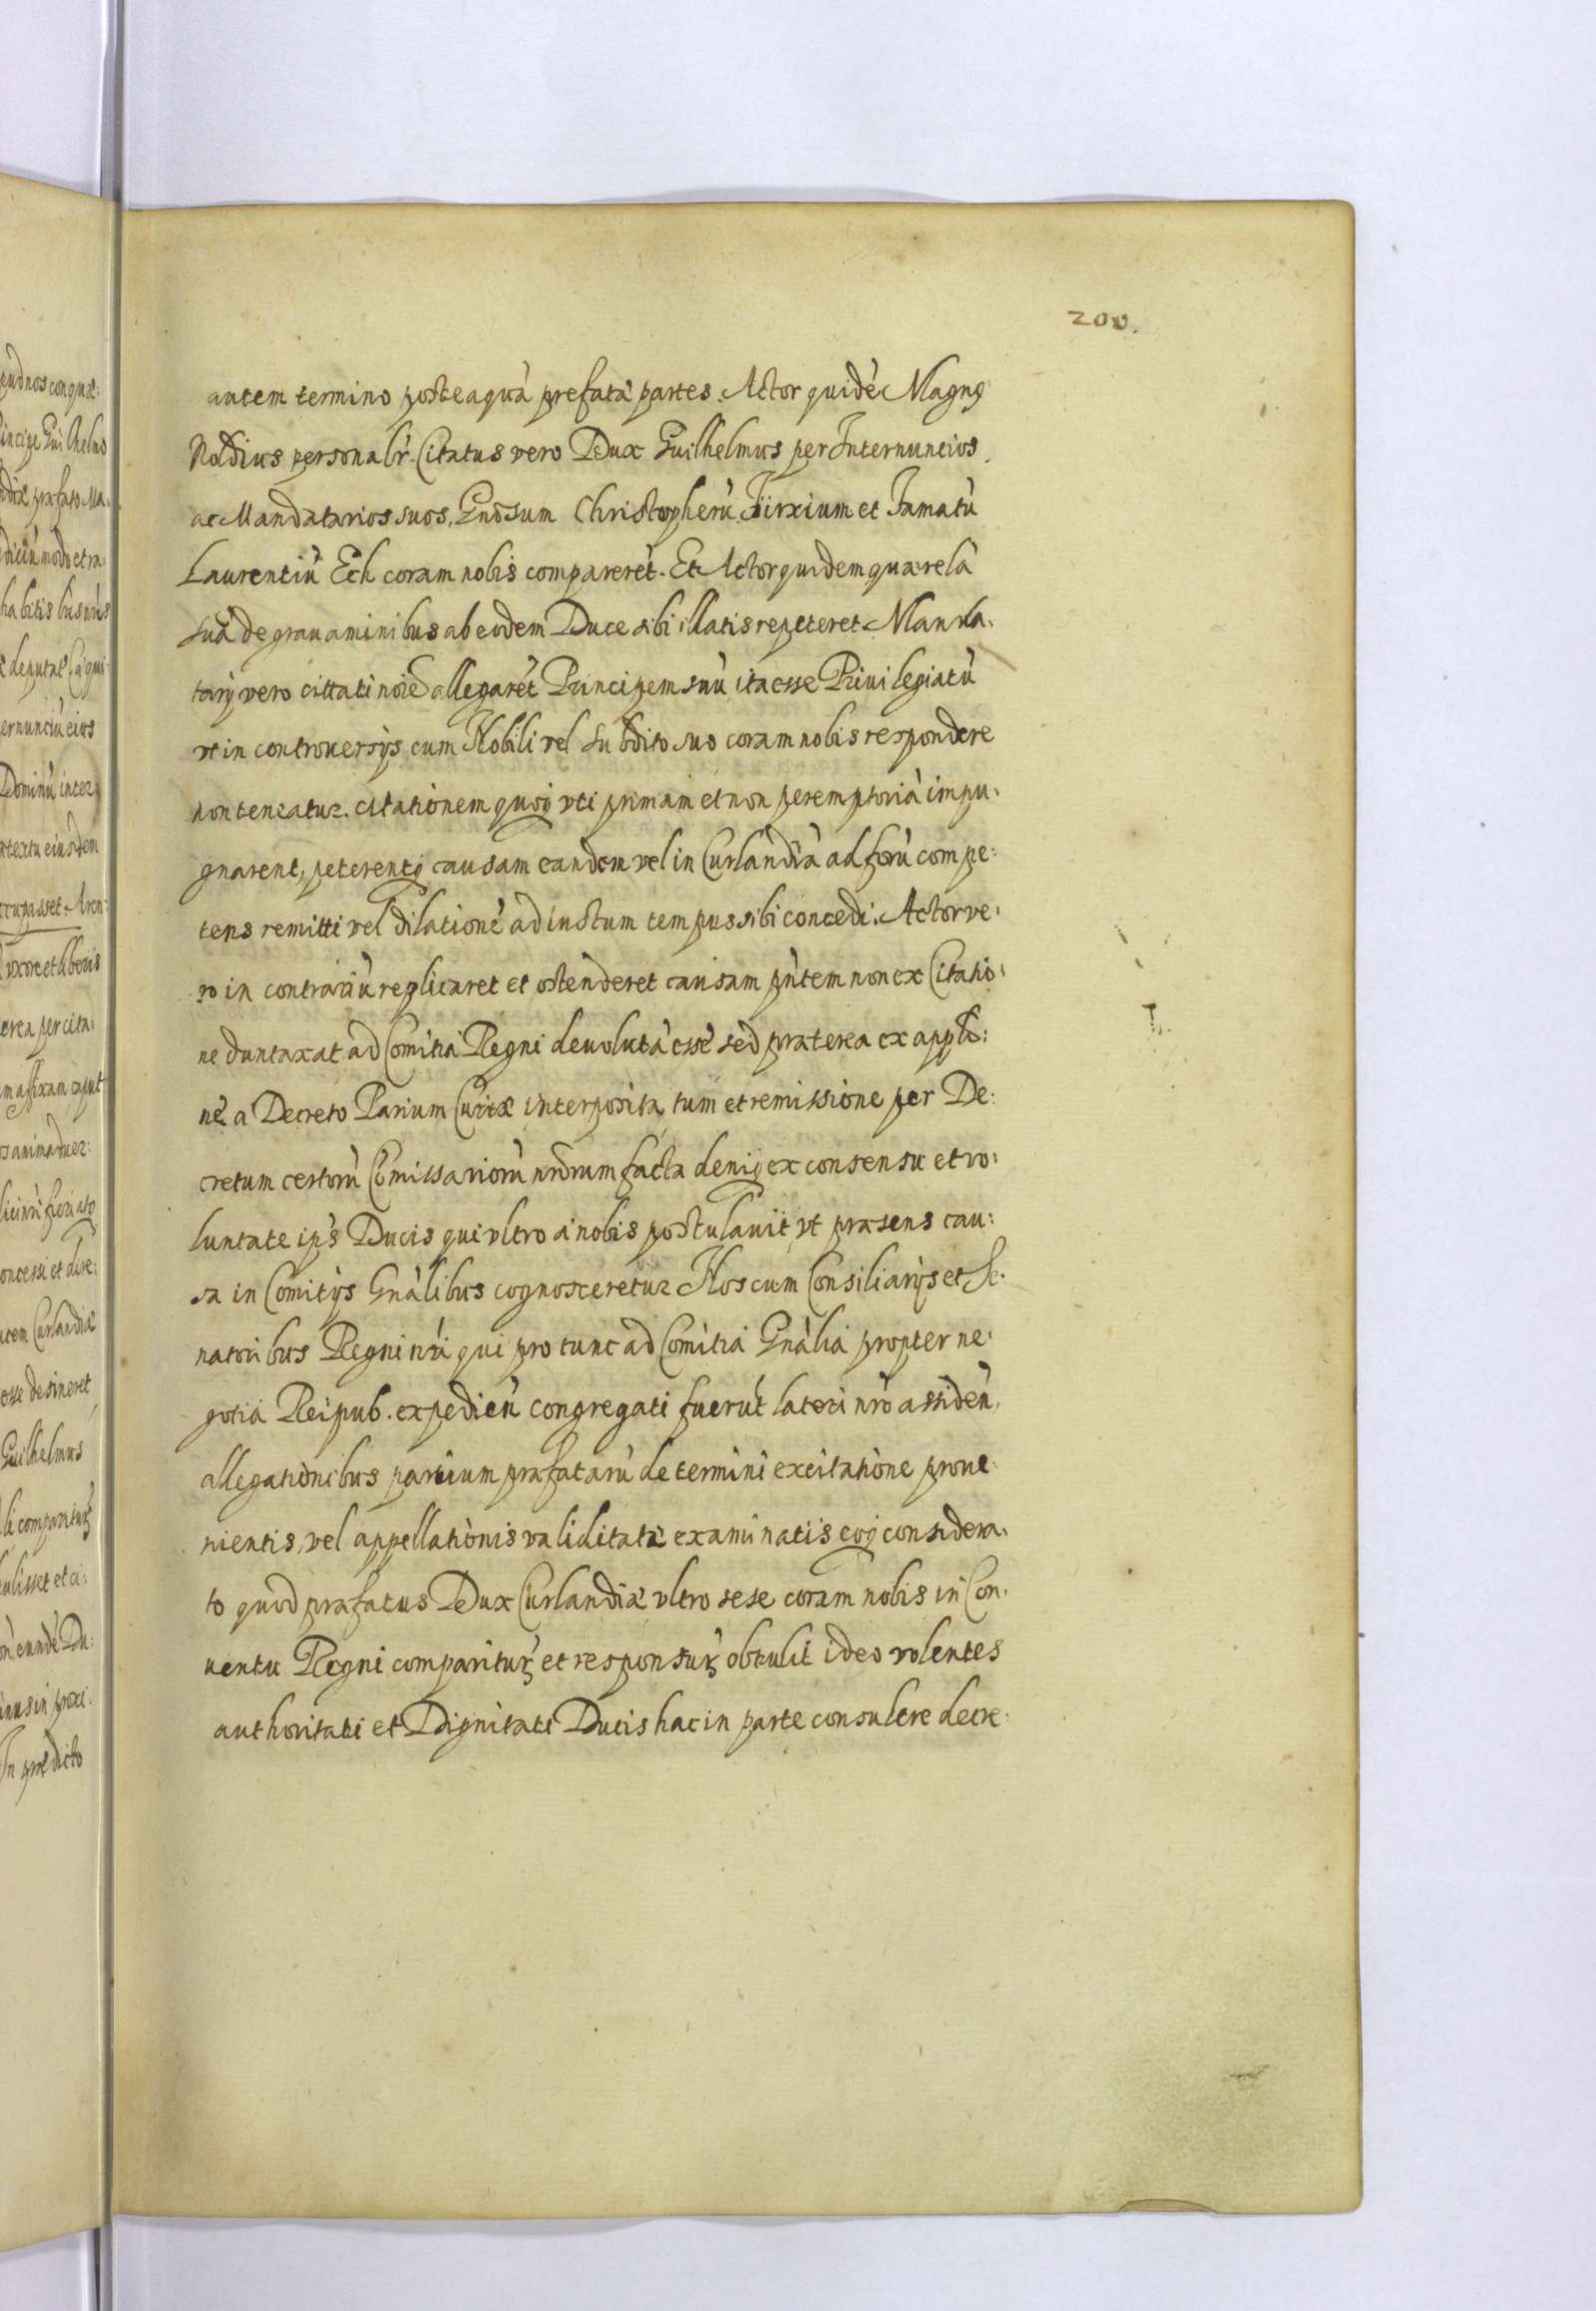 200.
autem termino posteaquà prefatæ partes. Actor quidè Magnꝰ
Noldius personalr̀. Citatus vero Dux Guilhelmus per Internuntios
ac Mandatarios suos, Gnōsum Christopherù Firxium et Famatù
Laurentiù Ech coram nobis comparerèt. Et Actor quidem quærelà
suà de grauaminibus ab eodem Duce sibi illatis repeteret Manda:
tarÿ vero cittati noīe allegarèt Principem suù ita esse Priuilegiatù
vt in controuersÿs cum Nobili vel subdito suo coram nobis respondere
non teneatur. citationem quoqꝫ vti primam et non peremptorià impu:
gnarent, peterentqꝫ causam eandem vel in Curlandià ad forù compe:
tens remitti vel dilationè ad iustum tempus sibi concedi. Actor ve:
ro in contrariù replicaret et ostenderet causam pǹtem non ex Citatio:
ne duntaxat ad Comitia Regni deuolutà esse sed præterea ex applō:
nè a Decreto Parium Curiæ interposita tum et remissione per De:
cretum certorù Comissariorù nr̄orum facta deniqꝫ ex consensu et vo:
luntate ip̄s Ducis qui vltro a nobis postulauit vt præsens cau:
sa in Comitÿs Gnàlibus cognosceretur Nos cum Consiliarÿs et Se:
natoribus Regni nr̀i qui pro tunc ad Comitia Gnàlia propter ne:
gotia Reipub. expedień congregati fuerùt lateri nr̀o assideǹ,
allegationibus partium præfatarù de termini ex citatione proue:
nientis, vel appellationis validitate examinatis eoqꝫ considera:
to quod præfatus Dux Curlandiæ vltro sese coram nobis in Con:
uentu Regni compariturꝫ et responsurꝫ obtulit ideo volentes
authoritati et Dignitati Ducis hac in parte consulere decre: